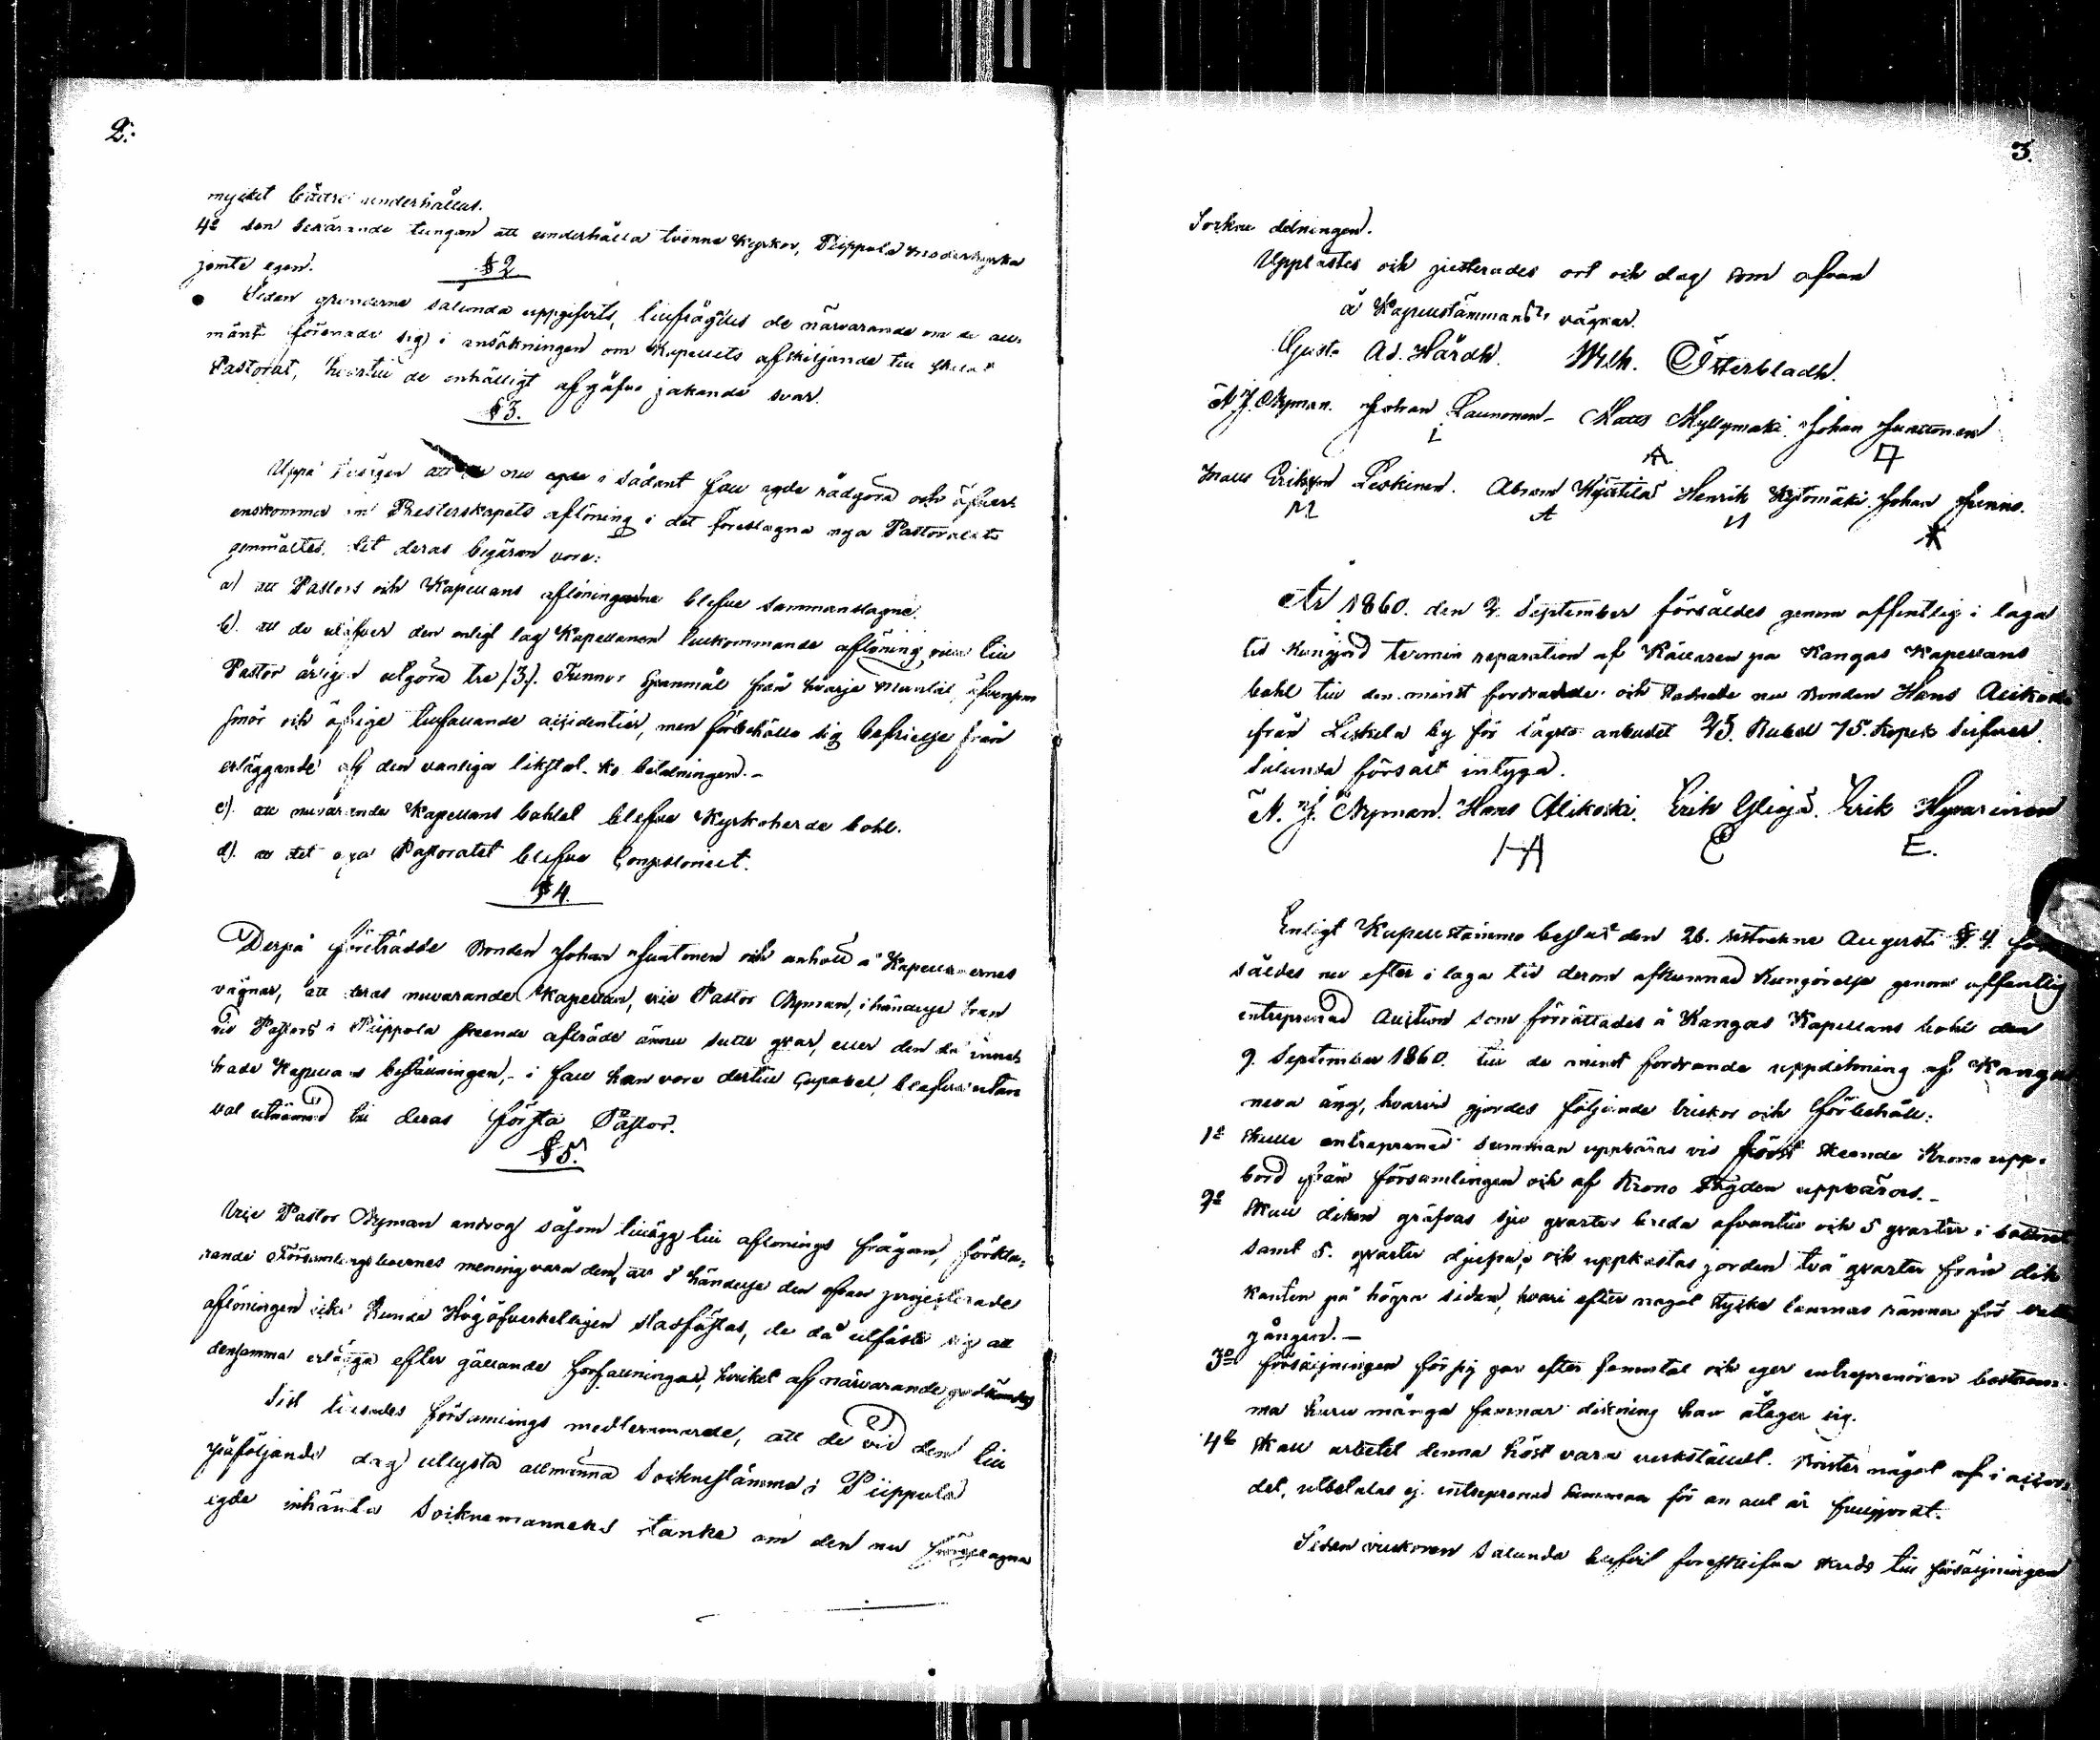 2.
mycket bättre underhållas.
4o den besvärande tungan att underhålla tvenne Kyrkor, Piippola moderkyrka
jemte egen.
§ 2
Sedan grunderna sålunda uppgifvits, tillfrågades de närvarande om de all-
mänt förenade sig i ansökningen om Kapellets afskiljande till skildt
Pastorat, hvartill de enhälligt afgåfvo jakande svar.
§ 3.
Uppå frågan att nu i sådant fall egde rådgöra och öfver-
enskomma om Presterskapets aflöning i det föreslagna nya Pastoratet
genmältes, det deras begäran vore:
a) att Pastors och Kapellans aflöningarne blefve sammanslagne.
b). att de utöfver den enligt lag Kapellanen tillkommande aflöning, till
Pastor årligen utgöra tre (3). Tunnor Spanmål från hvarje Mantal, äfvensom
smör och öfrige tillfallande accidentier, men förbehålla sig befrielse från
erläggande af den vanliga likstol-ko betalningen.-
c). att nuvarande Kapellans bohlet blefve Kyrkoherde bohl.
d). att det nya Pastoratet blefve Consistorielt.
§ 4.
Derpå företrädde Bonden Johan Juntonen och anhöll å Kapellboernes
vägnar, att deras nuvarande Kapellan, vice Pastor Nyman, i händelse han
vid Pastors i Piippola skeende afträde ännu sutte qvar, eller den då inne-
hade Kapellans beställningen,- i fall han vore dertill Capabel, blefve utan
val utnämnd till deras första Pastor.
§ 5.
Vice Pastor Nyman androg såsom tillägg till aflönings frågan, förkla-
rande Församlingsboernes mening vara den, att i händelse den ofvan projecterade
aflöningen icke kunde Högöfverheteligen stadfästas, de då utfäste sig att
densamma erlägga efter gällande författningar, hvilket af närvarande godkändes
Sist tillsades församlings medlemmarde, att de vid den till
påföljande dag utlysta allmänna Socknestämma i Piippola
egde inhämta Socknemännens tanke om den nu föreslagna
3.
Sockne delningen.
Upplästes och justerades ort och dag som ofvan
å Kapellstämmans vägnar.
Gust. Ad. Hårdh. Wilh. Österbladh.
A. J. Nyman. Johan Launonen- Matts Myllymäki. Johan Juntonen
L A
Matts Eriksson Leskinen. Abram Henrik Kytömäki. Johan Junno.
M A H
År 1860. den 2. September försåldes genom offentlig i laga
tid kungjord termin reparation af Källaren på Kangas Kapellans
bohl till den minst fordrande och stadnade nu Bonden Hans Alikoski
från Leskelä by för lägsta anbudet 25. Rubel 75. Kopek Silfver.
Sålunda försålt intyga.
A. J. Nyman. Hans Alikoski. Erik Ylioja. Erik Hyvärinen
HA E E.
Enligt Kapellstämmo beslut den 26. sistnekne Augusti §. 4. för-
såldes nu efter i laga tid derom afkunnad Kungörelse genom offentlig
entreprenad Auction som förrättades å Kangas Kapellans bohl den
9. September 1860. till de minst fordrande uppdikning af Kangas
neva äng, hvarvid gjordes följande vilkor och förbehåll:
1o Skulle entreprenad summan uppbäras vid först skeende Krono upp-
bord från församlingen och af Krono Fogden uppbäras.-
2o Skall diken gräfvas sju qvarter breda ofvantill och 5 qvarter i bottnet
samt 5. qvarter djupa, och uppkastas jorden två qvarter från dik
kanten på högra sidan, hvari efter något stycke lemnas ränna för vatten
gången.-
3o försäljningen för sig går efter famntal och eger entreprenören bestäm-
ma huru många famnar dikning han åtager sig.
4o Skall arbetet denna höst vara verkställdt. Brister något af i accor-
det, utbetalas ej entreprenad summan för än allt är fullgjordt.
Sedan vilkoren sålunda blifvit föreskrifna skreds till försäljningen